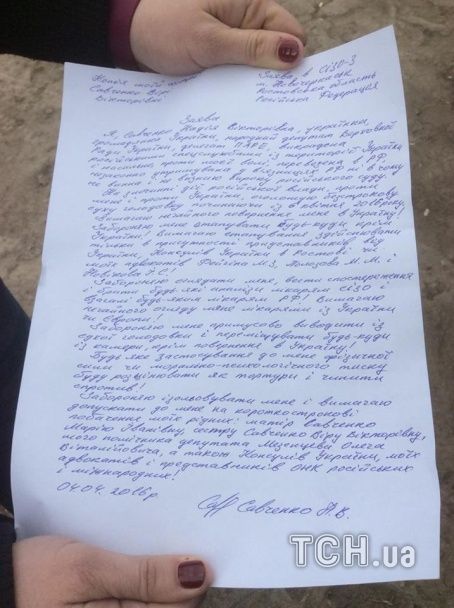 Копія моїй
Савченко Вірі
Вікторівні
Заява в СІЗО-3
м. Новочеркаськ
Ростовська область
Російська Федерація
Заява
Я, Савченко Надія Вікторівна, українка,
громадянка України, народний депутат Верховної
Ради України, делегат ПАРЄ, викрадена
російськими спецслужбами із території України
і насильно, проти моєї волі, вивезена в РФ
незаконно утримувана у в'язницях РФ, ні в чому
не винна і не визнаю вироку російського суду
На злочинні дії російської влади, проти
мене і проти України оголошую безстрокову
суху голодовку починаючи із 6 квітня 2016 року,
і вимагаю негайного повернення мене в Україну!
Забороняю мене етапувати будь-куди крім
України! І вимагаю етапування здійснювати
тільки в присутності представників від
України, Консулів України в Ростові чи
моїх адвокатів Фейгіна М.З, Полозова М.М і
Новікова І.С!
Забороняю оглядати мене, вести спостереження
і брати будь-які аналізи лікарям СІЗО і
взагалі будь-яким лікарям РФ! Вимагаю
негайного огляду мене лікарями із України
чи Європи!
Забороняю мене примусово виводити із
сухої голодовки і переміщувати будь-куди
із камери, крім повернення в Україну!
Будь-яке застосування до мене фізичної
сили чи морально-психологічного тиску
буду розцінювати як тортури і чинити
спротив!
Забороняю ізольовувати мене і вимагаю
допускати до мене на короткострокові
побачення моїх рідних: матір Савченко
Марію Іванівну, сестру Савченко Віру Вікторівну,
мого помічника депутата Олега
Віталійовича, а також Консулів України, моїх
адвокатів і представників ОНК російських
і міжнародних!
04.04.2016р.
Савченко Н.В.
ТСН.ua